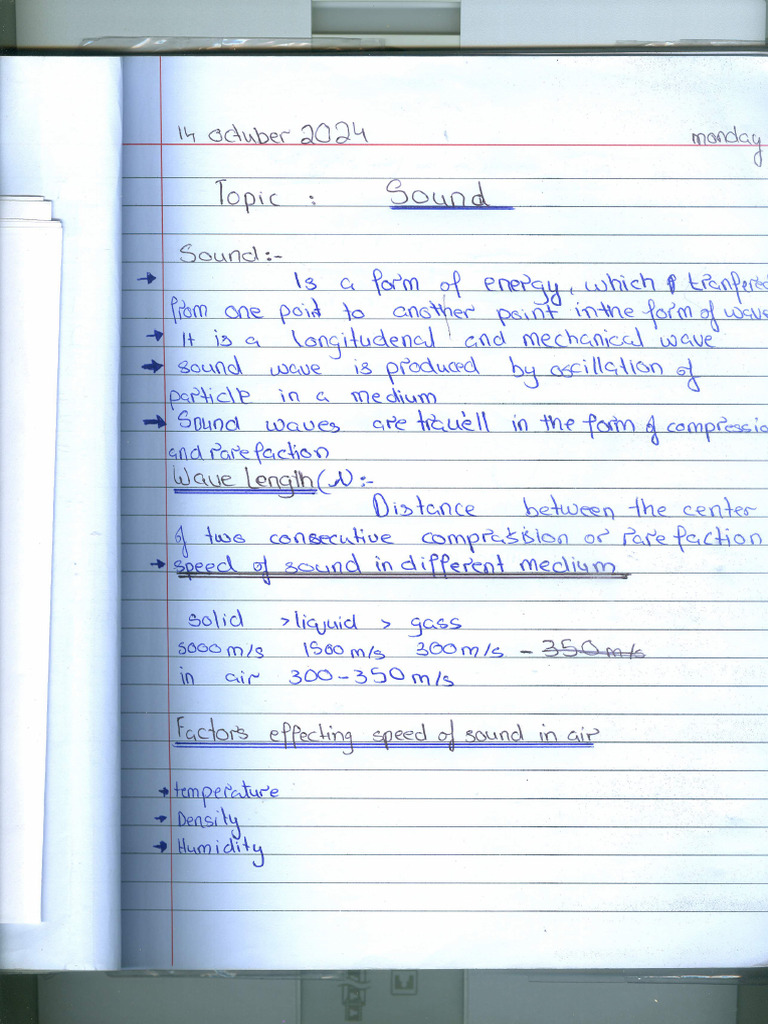 14 octuber 2024 monday
Topic : Sound
Sound:-
→ Is a form of energy, which tranfered
from one point to another point in the form of wave
→ It is a longitudenal and mechanical wave
→ sound wave is produced by oscillation of
particle in a medium
→ Sound waves are travell in the form of compressio
and rarefaction
Wave Length (λ) :-
Distance between the center
of two consecutive comprassision or rarefaction
→ speed of sound in different medium
solid > liquid > gass
5000 m/s 1500 m/s 300 m/s - 350 m/s
in air 300 - 350 m/s
Factors effecting speed of sound in air
→ temperature
→ Density
→ Humidity